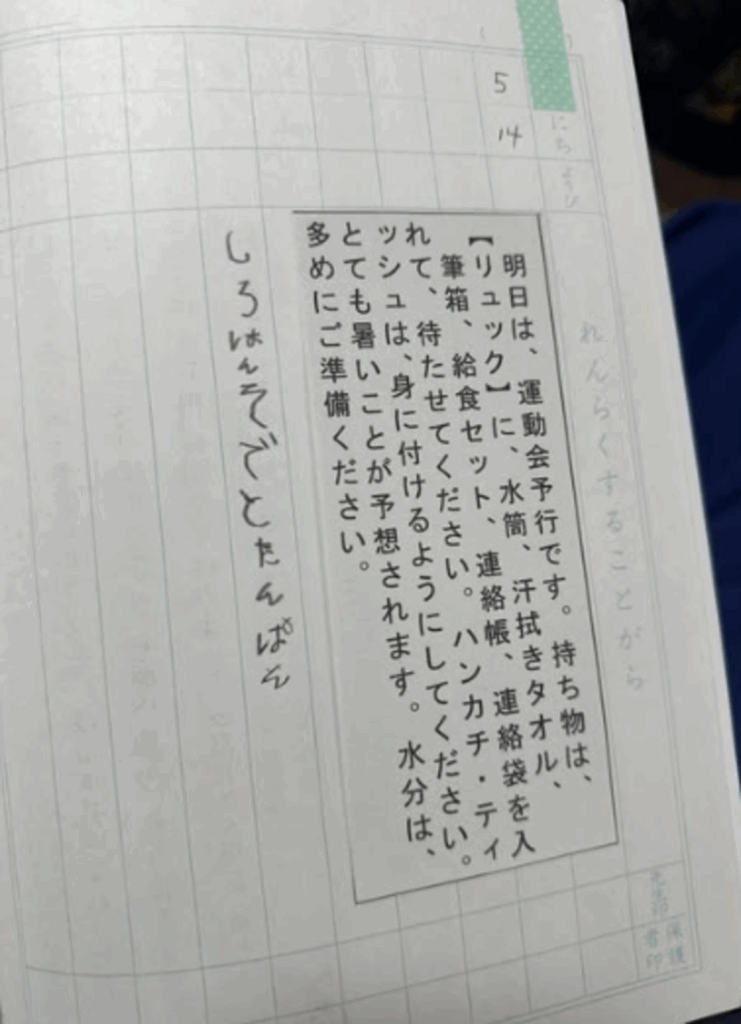 5
14
にち
ようび
れんらくすることがら
明日は、運動会予行です。持ち物は、
【リュック】に、水筒、汗拭きタオル、
筆箱、給食セット、連絡帳、連絡袋を入
れて、待たせてください。ハンカチ・ティ
ッシュは、身に付けるようにしてください。
とても暑いことが予想されます。水分は、
多めにご準備ください。
しろはんそでとたんぱん
保護
者印